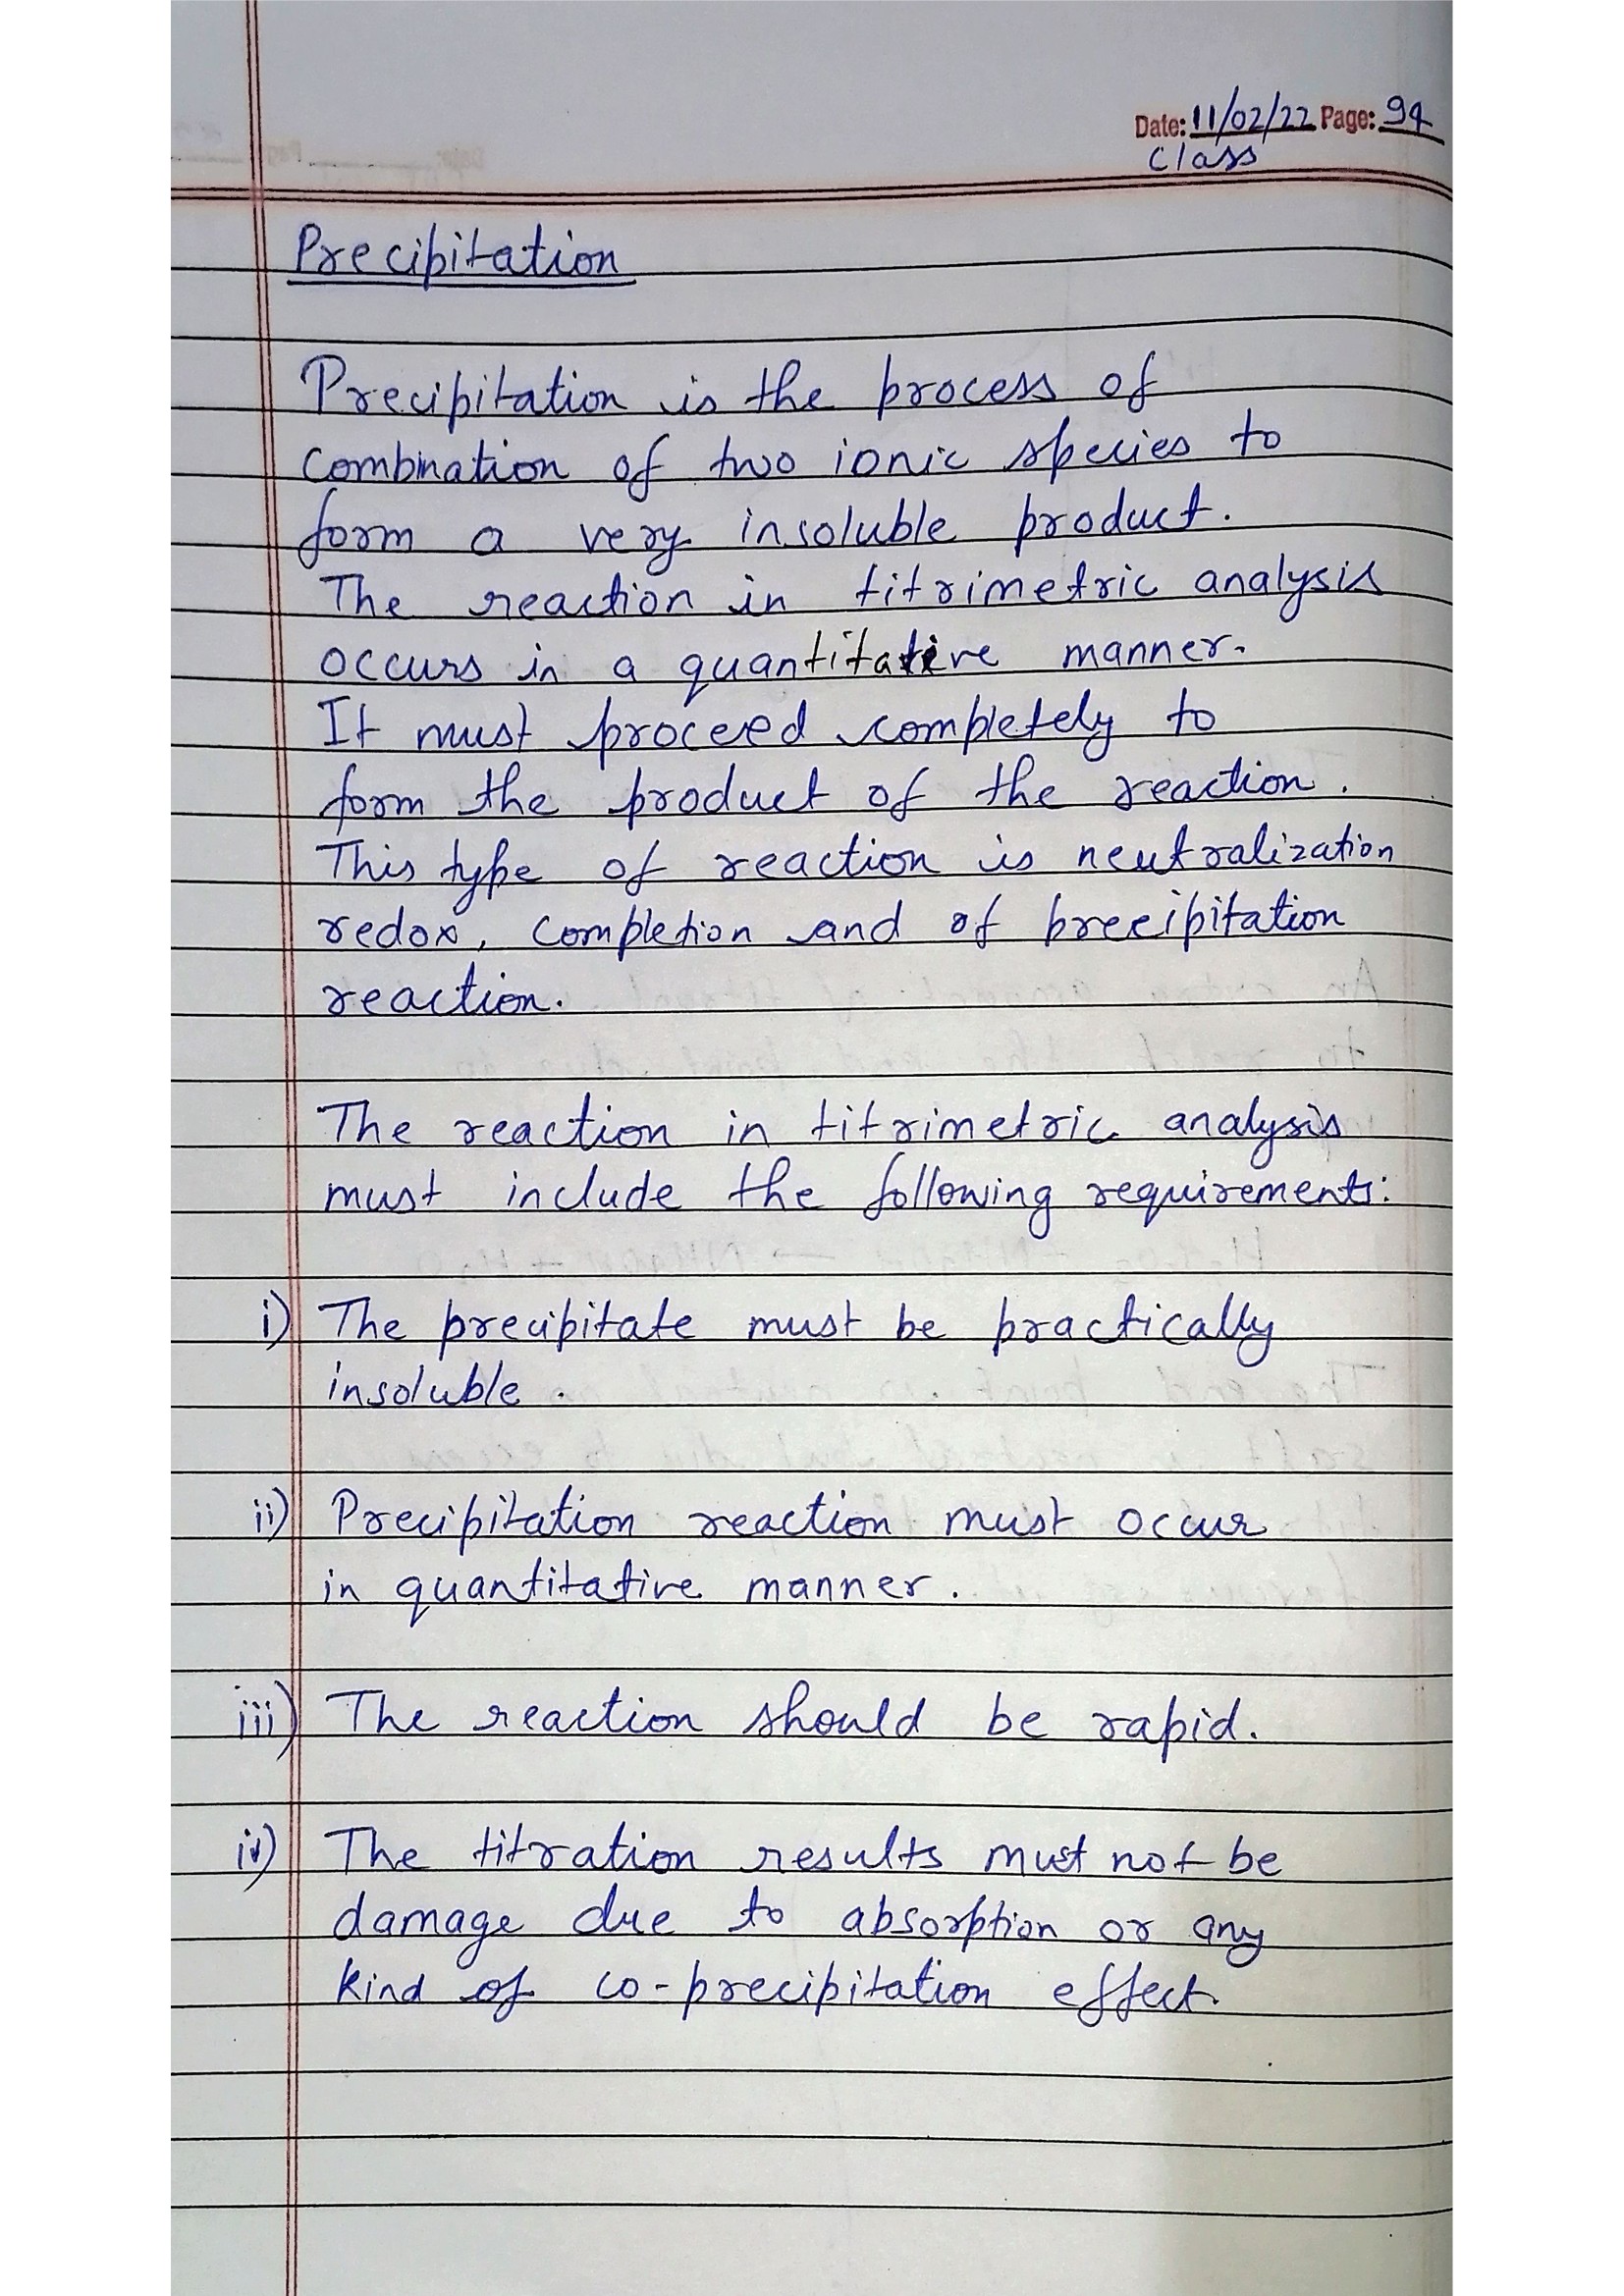 Date: 11/02/22 Page: 94
Class
Precipitation
Precipitation is the process of
combination of two ionic species to
form a very insoluble product.
The reaction in titrimetric analysis
occurs in a quantitative manner.
It must proceed completely to
form the product of the reaction.
This type of reaction is neutralization
redox, completion and of precipitation
reaction.
The reaction in titrimetric analysis
must include the following requirements:
i) The precipitate must be practically
insoluble.
ii) Precipitation reaction must occur
in quantitative manner.
iii) The reaction should be rapid.
iv) The titration results must not be
damage due to absorption or any
kind of co-precipitation effect.